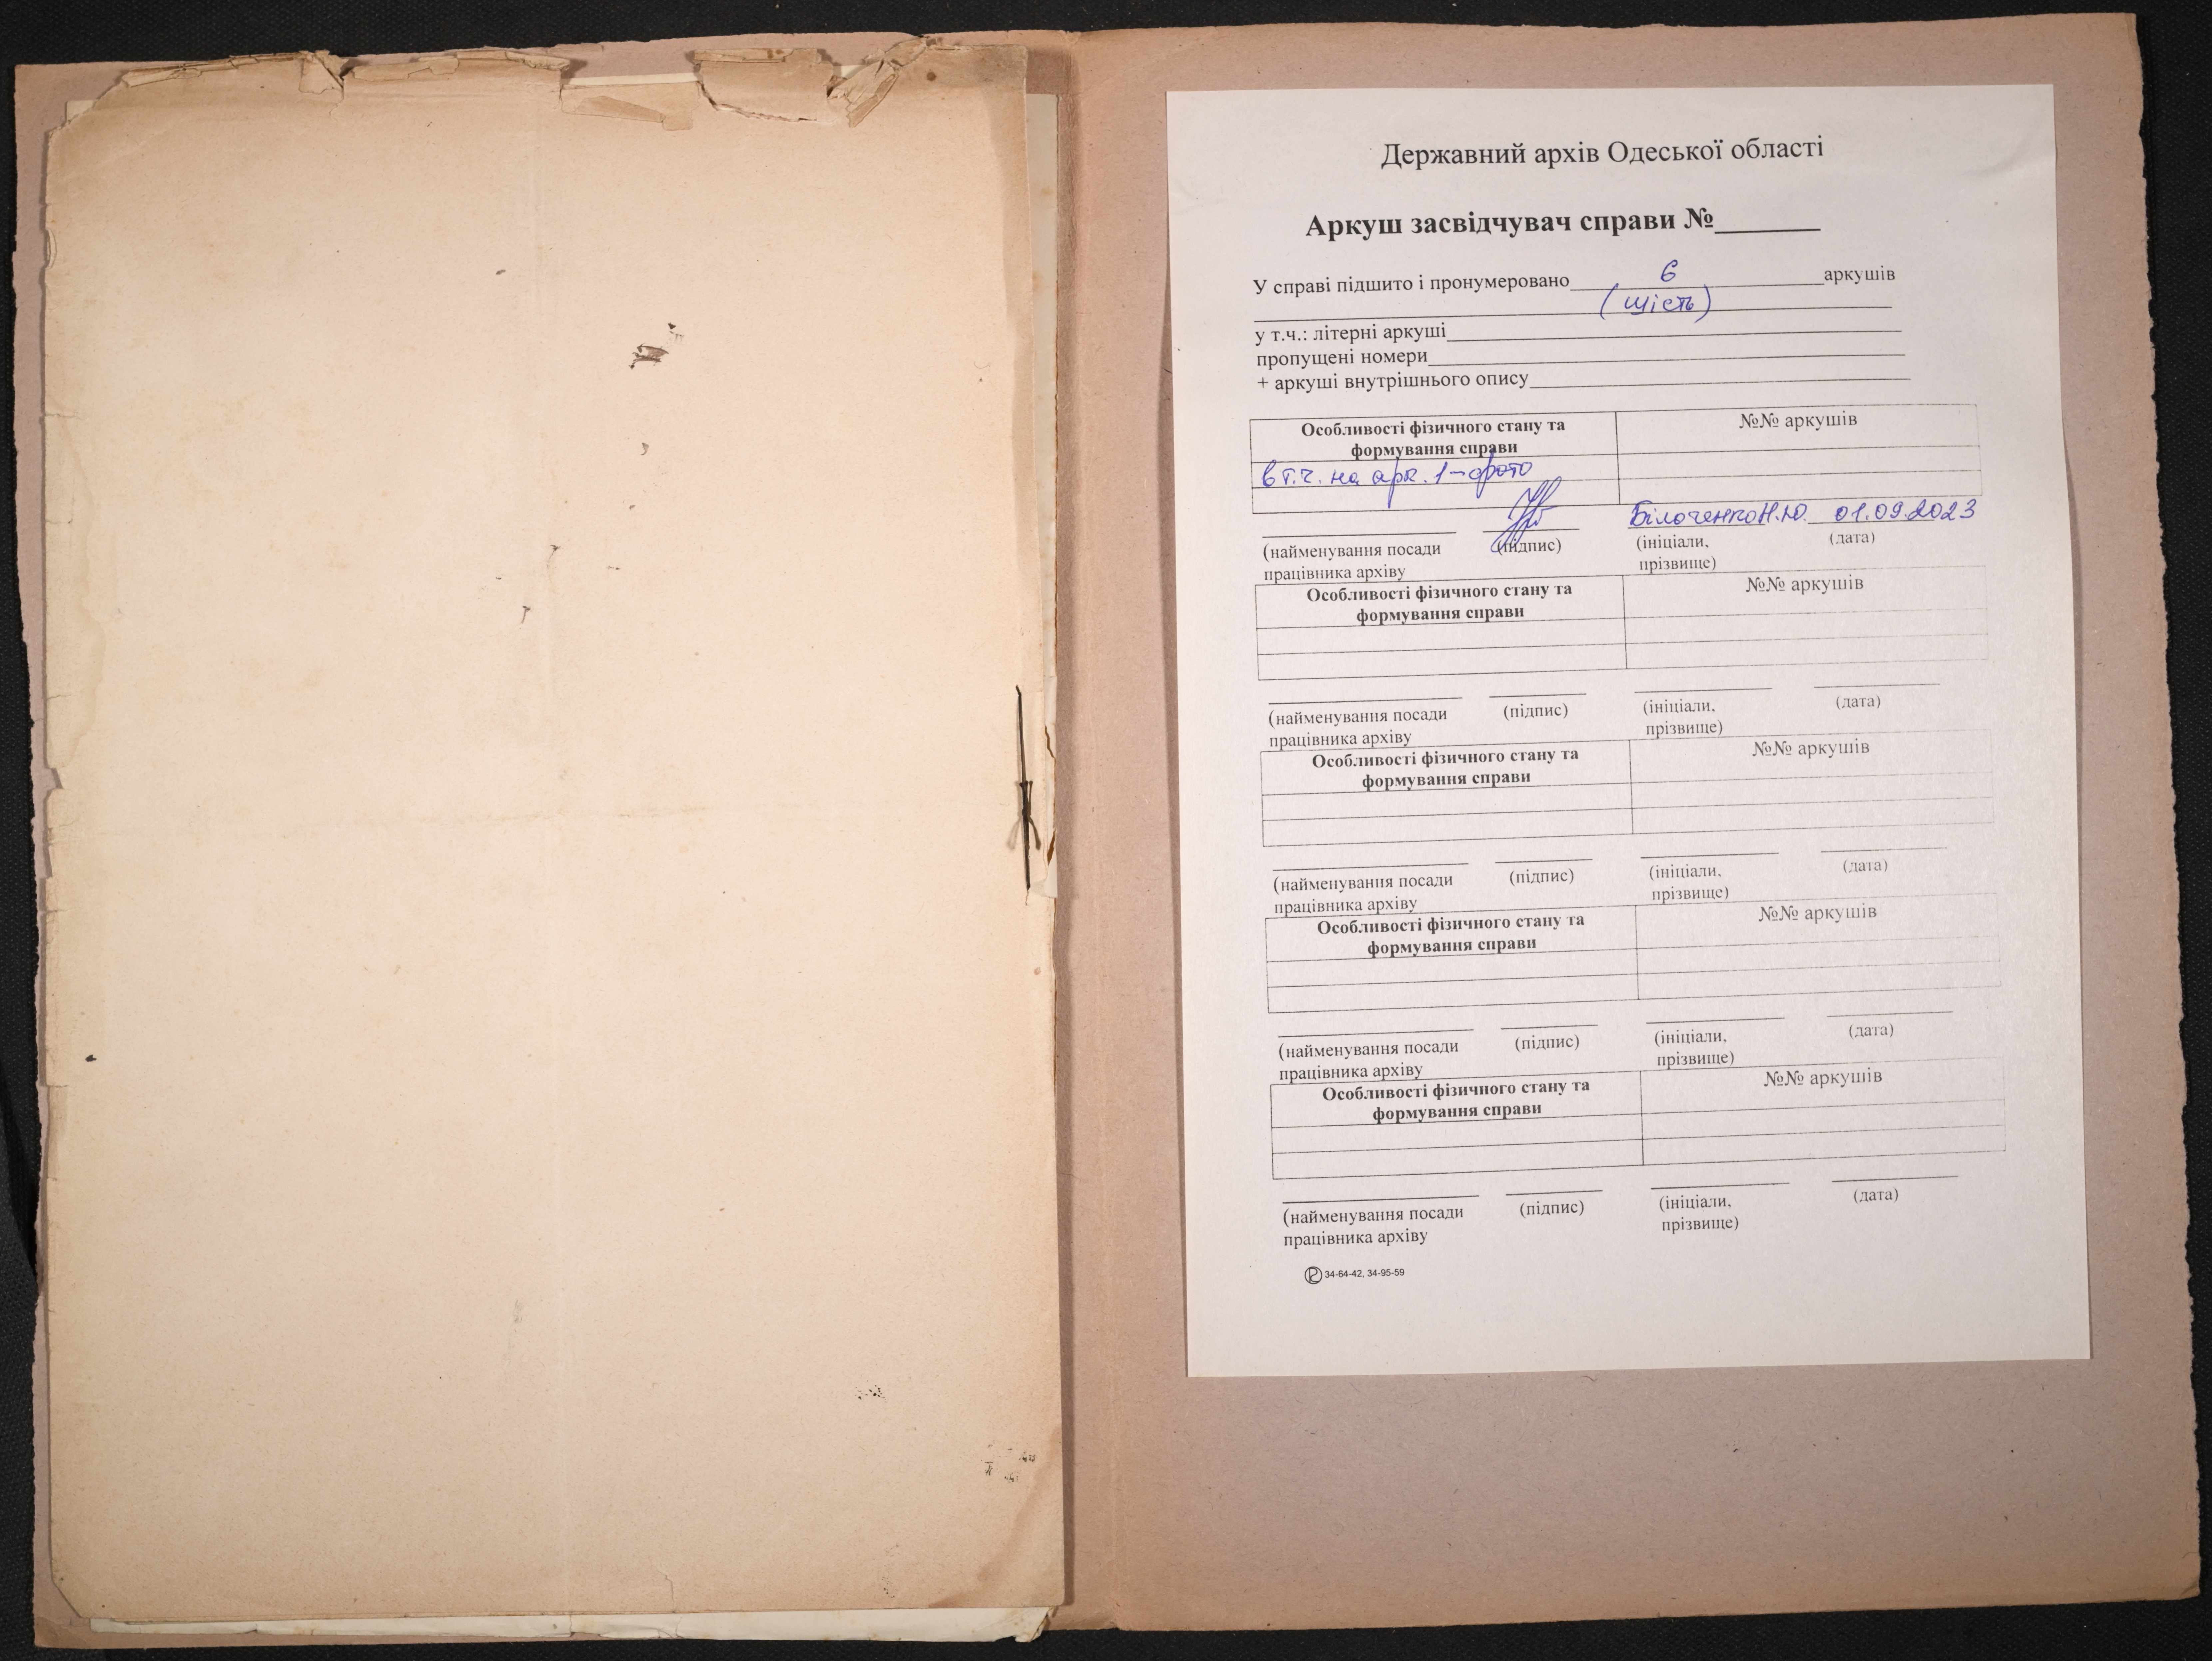 Державний архів Одеської області
Аркуш засвідчувач справи №_______
У справі підшито і пронумеровано 6 аркушів
(шість)
у т.ч.: літерні аркуші
пропущені номери
+ аркуші внутрішнього опису
Особливості фізичного стану та формування справи №№ аркушів
в т.ч. на арк. 1-фото
Білоченко Н.Ю. 01.09.2023
(найменування посади працівника архіву (підпис) (ініціали, прізвище) (дата)
Особливості фізичного стану та формування справи №№ аркушів
(найменування посади працівника архіву (підпис) (ініціали, прізвище) (дата)
Особливості фізичного стану та формування справи №№ аркушів
(найменування посади працівника архіву (підпис) (ініціали, прізвище) (дата)
Особливості фізичного стану та формування справи №№ аркушів
(найменування посади працівника архіву (підпис) (ініціали, прізвище) (дата)
Особливості фізичного стану та формування справи №№ аркушів
(найменування посади працівника архіву (підпис) (ініціали, прізвище) (дата)
34-64-42, 34-95-59